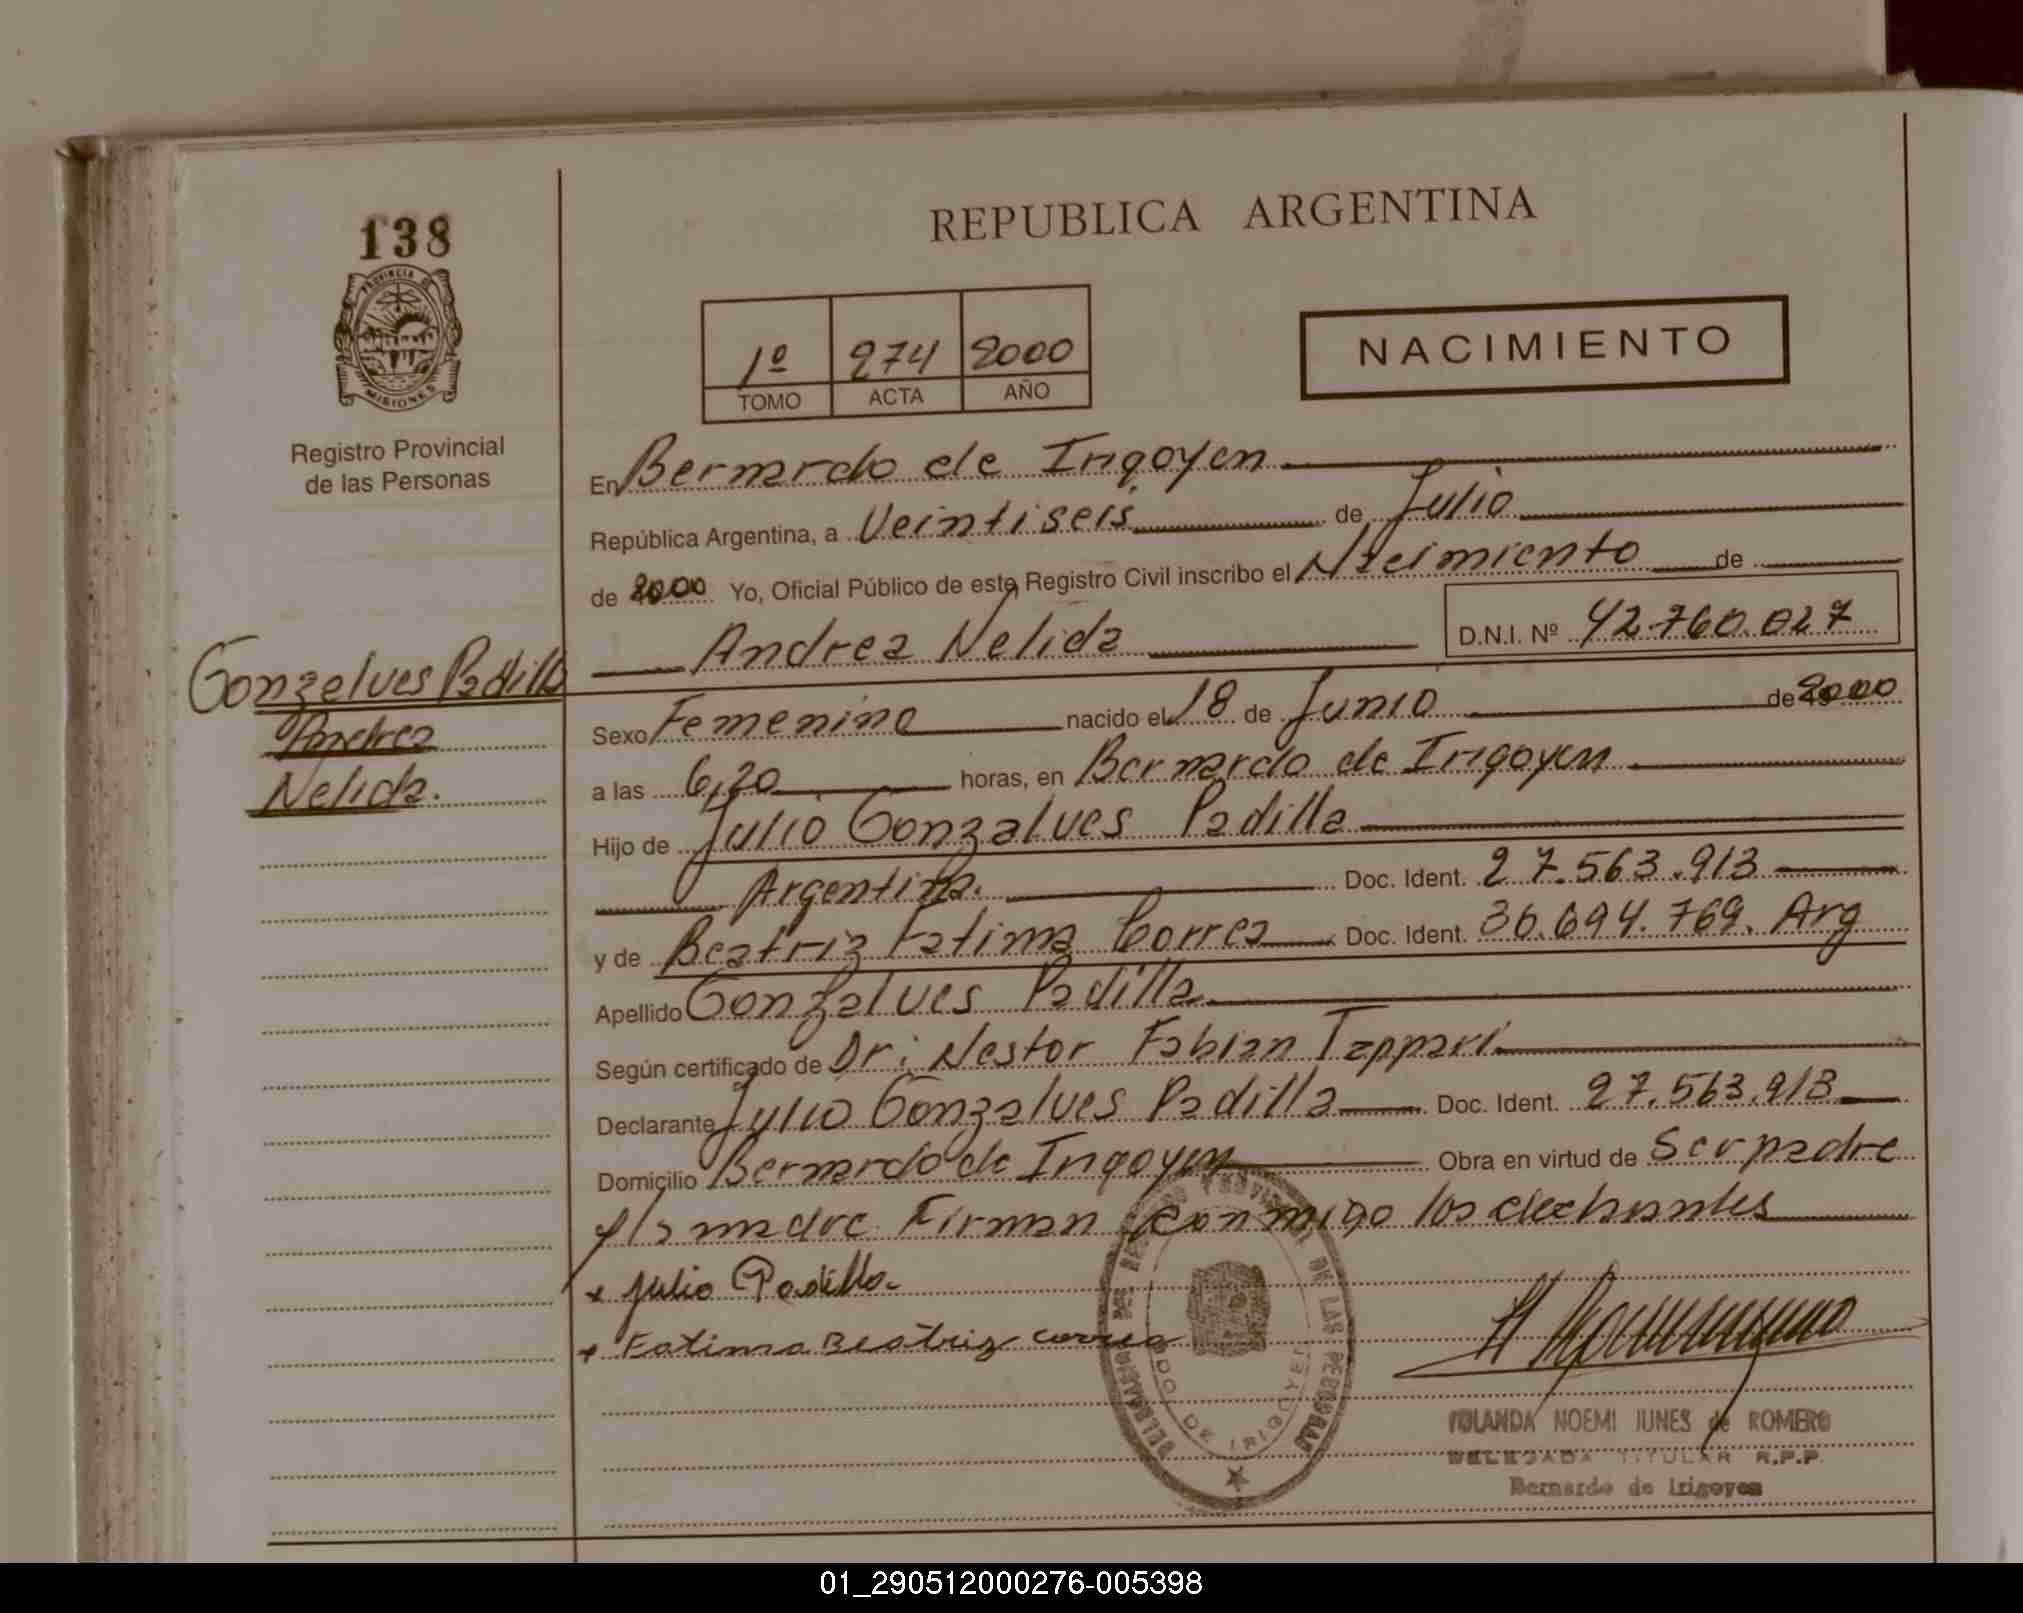 138
REPUBLICA ARGENTINA
PROVINCIA DE
MISIONES
Registro Provincial
de las Personas
1º 274 2000
TOMO ACTA AÑO
NACIMIENTO
En Bernardo de Irigoyen
República Argentina, a Veintiseis de Julio
de 2000 Yo, Oficial Público de este Registro Civil inscribo el Nacimiento de
Andrea Nelida D.N.I. Nº 42.760.027
Gonzalves Padilla
Andrea
Nelida.
Sexo Femenino nacido el 18 de Junio de 2000
a las 6,20 horas, en Bernardo de Irigoyen
Hijo de Julio Gonzalves Padilla
Argentina. Doc. Ident. 27.563.913
y de Beatriz Fatima Correa Doc. Ident. 36.694.769. Arg
Apellido Gonzalves Padilla
Según certificado de Dr: Nestor Fabian Tappari
Declarante Julio Gonzalves Padilla Doc. Ident. 27.563.913
Domicilio Bernardo de Irigoyen Obra en virtud de Ser padre
y la madre Firman conmigo los
Julio Padilla
Fatima Beatriz Correa
DELEGACION DEL REGISTRO PROVINCIAL DE LAS PERSONAS
DO DE IRIGOYEN
YOLANDA NOEMI JUNES de ROMERO
DELEGADA TITULAR R.P.P.
Bernardo de Irigoyen
01_290512000276-005398